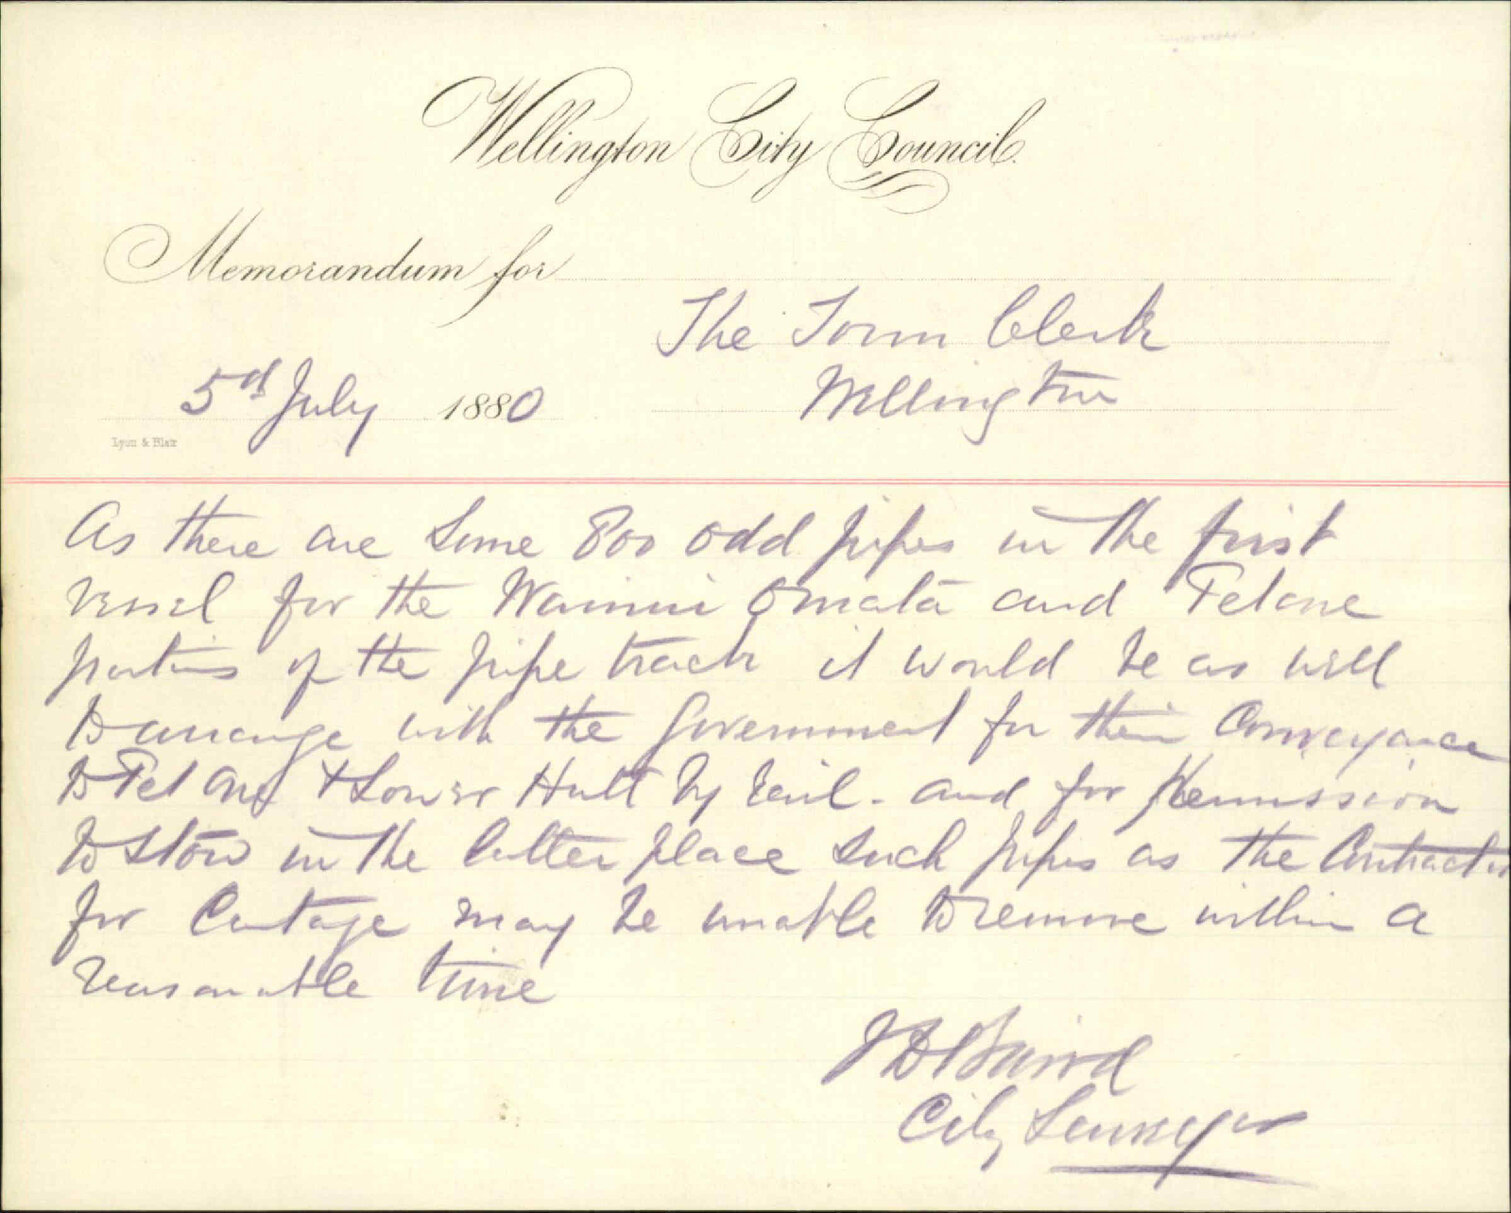 Wellington City Council.
Memorandum for
The Town Clerk
5th July 1880
Wellington
Lyon & Blair
As there are some 800 odd pipes in the first
vessel for the Wainui Omata and Petone
portions of the pipe track it would be as well
to arrange with the Government for their Conveyance
to Petone & Lower Hutt by rail - and for permission
to store in the latter place such pipes as the Contractor
for Cartage may be unable to remove within a
reasonable time
J D Baird
City Surveyor